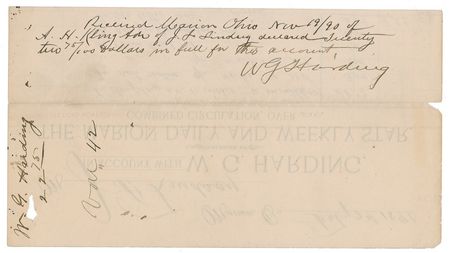 Received Marion Ohio Nov 19/90 of
A. H. Kling Adr of J. F. Lindsey deceased Twenty
two 75/100 Dollars in full for this account
W G Harding
W. G. Harding
22 75
Vou 42
COMBINED CIRCULATION, OVER
THE MARION DAILY AND WEEKLY STAR,
IN ACCOUNT WITH W. G. HARDING,
Marion O.